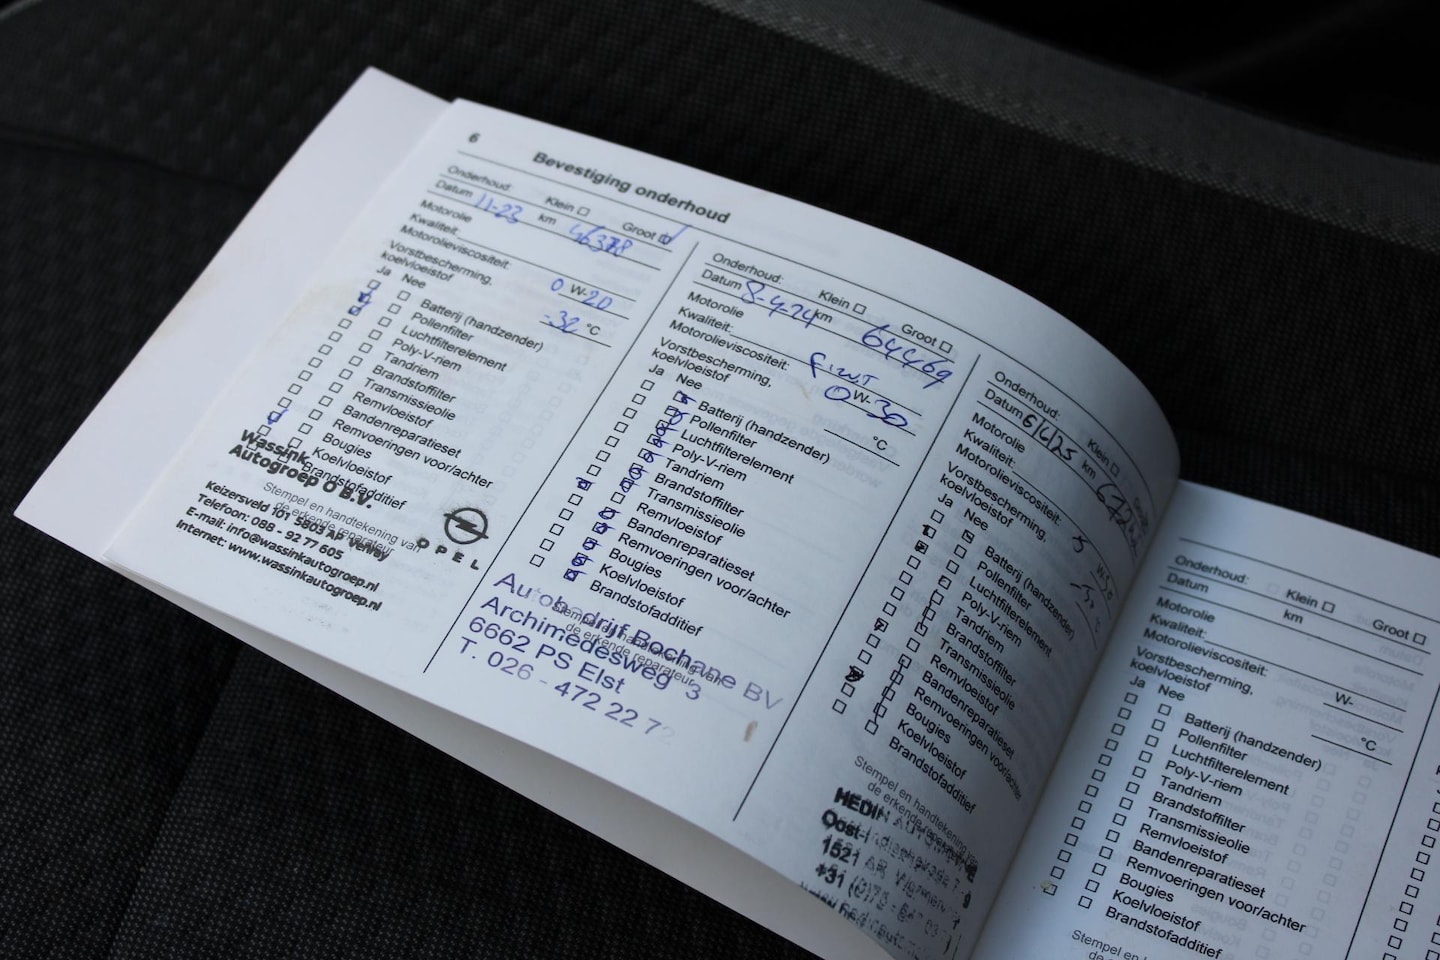 6
Bevestiging onderhoud
Onderhoud: Klein ☐ Groot ☑
Datum 11-23 km 46378
Motorolie
Kwaliteit:
Motorolieviscositeit: 0 W-20
Vorstbescherming,
koelvloeistof -32 °C
Ja Nee
Batterij (handzender)
Pollenfilter
Luchtfilterelement
Poly-V-riem
Tandriem
Brandstoffilter
Transmissieolie
Remvloeistof
Bandenreparatieset
Remvoeringen voor/achter
Bougies
Koelvloeistof
Brandstofadditief
Stempel en handtekening van
de erkende reparateur
Wassink
Autogroep O B.V.
Keizersveld 101 5803 AP Venray
Telefoon: 088 - 92 77 605
E-mail: info@wassinkautogroep.nl
Internet: www.wassinkautogroep.nl
OPEL
Onderhoud: Klein ☐ Groot ☐
Datum 8-4-24 km 64469
Motorolie
Kwaliteit:
Motorolieviscositeit: 0 W-30
Vorstbescherming,
koelvloeistof °C
Ja Nee
Batterij (handzender)
Pollenfilter
Luchtfilterelement
Poly-V-riem
Tandriem
Brandstoffilter
Transmissieolie
Remvloeistof
Bandenreparatieset
Remvoeringen voor/achter
Bougies
Koelvloeistof
Brandstofadditief
Stempel en handtekening van
de erkende reparateur
Autobedrijf Bochane BV
Archimedesweg 3
6662 PS Elst
T. 026 - 472 22 72
Onderhoud: Klein ☐
Datum km
Motorolie
Kwaliteit:
Motorolieviscositeit:
Vorstbescherming,
koelvloeistof
Ja Nee
Batterij (handzender)
Pollenfilter
Luchtfilterelement
Poly-V-riem
Tandriem
Brandstoffilter
Transmissieolie
Remvloeistof
Bandenreparatieset
Remvoeringen voor/achter
Bougies
Koelvloeistof
Brandstofadditief
Stempel en handtekening van
de erkende reparateur
HEDIN
Onderhoud: Klein ☐ Groot ☐
Datum km
Motorolie
Kwaliteit:
Motorolieviscositeit: W-
Vorstbescherming,
koelvloeistof °C
Ja Nee
Batterij (handzender)
Pollenfilter
Luchtfilterelement
Poly-V-riem
Tandriem
Brandstoffilter
Transmissieolie
Remvloeistof
Bandenreparatieset
Remvoeringen voor/achter
Bougies
Koelvloeistof
Brandstofadditief
Stempel en